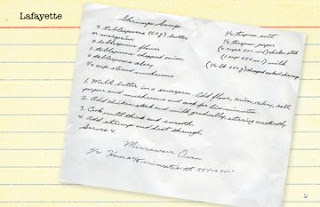 Lafayette
Shrimp Soup
3 tablespoons (60g) butter
or margarine
3 tablespoons flour
2 tablespoons chopped onion
2 tablespoons celery
1/2 cup sliced mushrooms
1/2 teaspoon salt
1/4 teaspoon pepper
chicken stock
milk
chopped cooked shrimp
1. Melt butter in a saucepan. Add flour, onion, celery, salt,
pepper and mushrooms and cook for two minutes.
2. Add chicken stock and milk gradually, stirring constantly.
3. Cook until thick and smooth.
4. Add shrimp and heat through.
Serves 4.
Microwave Oven